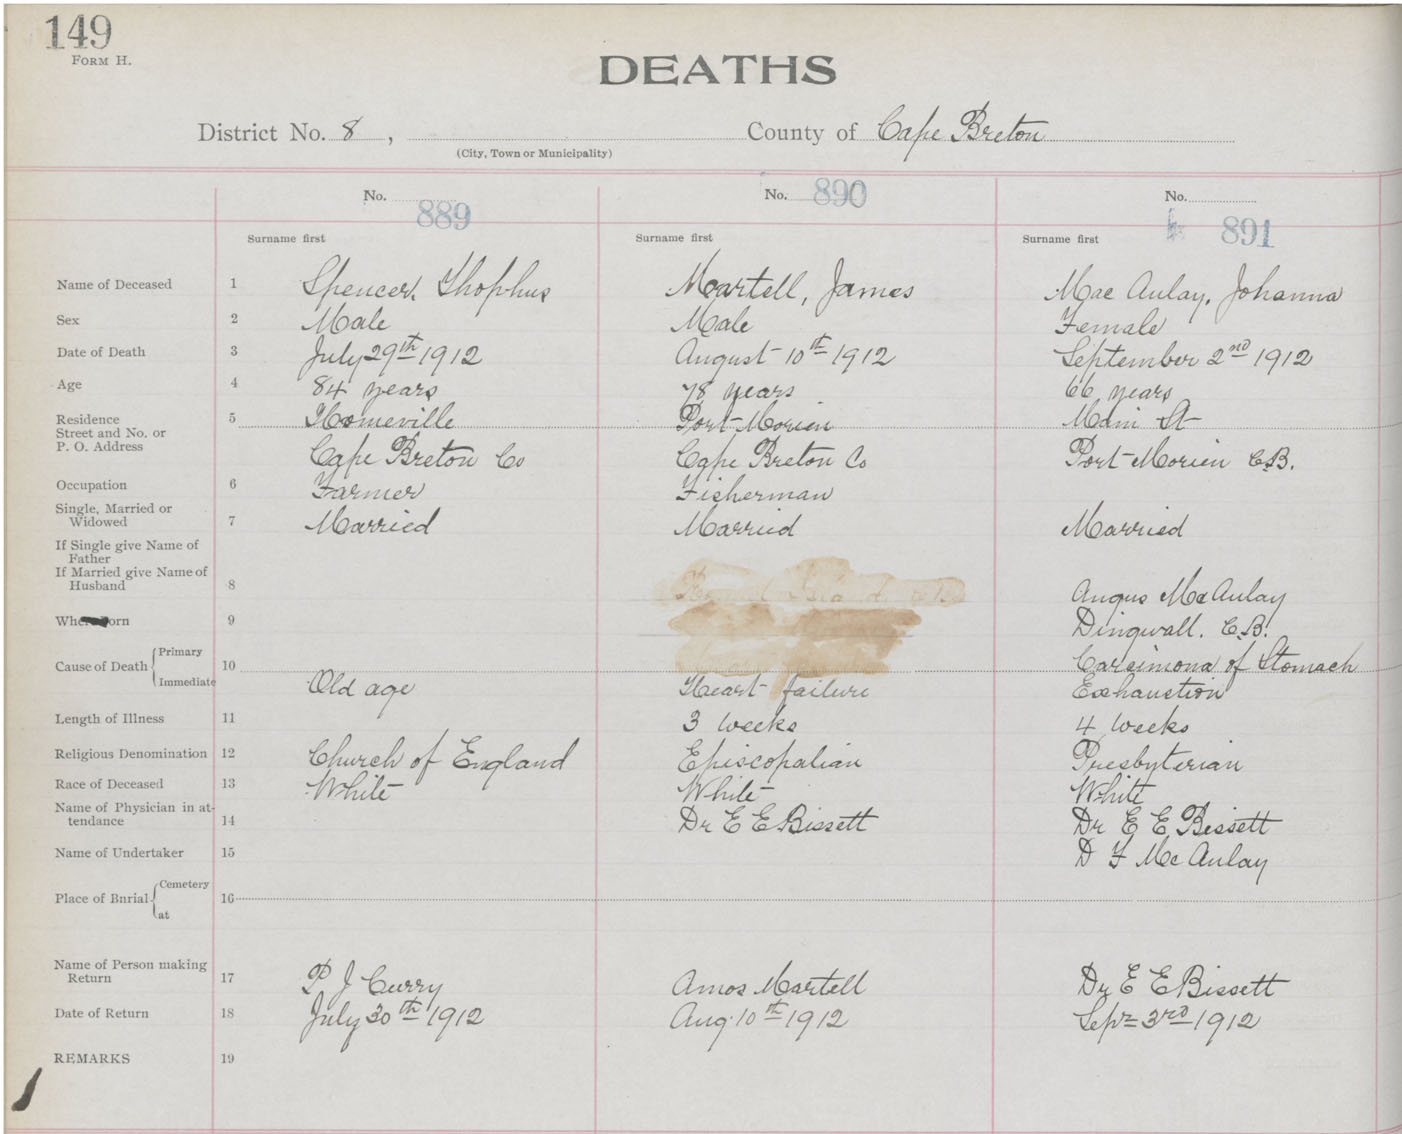 149
FORM H.
DEATHS
District No. 8, County of Cape Breton
(City, Town or Municipality)
No. 889 No. 890 No. 891
Surname first Surname first Surname first
Name of Deceased 1 Spencer, Thophus Martell, James Mac Aulay, Johanna
Sex 2 Male Male Female
Date of Death 3 July 29th 1912 August 10th 1912 September 2nd 1912
Age 4 84 years 78 years 66 years
Residence 5 Homeville Port Morien Main St
Street and No. or
P. O. Address Cape Breton Co Cape Breton Co Port Morien C.B.
Occupation 6 Farmer Fisherman
Single, Married or
Widowed 7 Married Married Married
If Single give Name of
Father
If Married give Name of
Husband 8 Angus McAulay
Where Born 9 Dingwall. C.B.
Cause of Death Primary 10 Carsimona of Stomach
Immediate Old age Heart failure Exhaustion
Length of Illness 11 3 weeks 4 weeks
Religious Denomination 12 Church of England Episcopalian Presbyterian
Race of Deceased 13 White White White
Name of Physician in at-
tendance 14 Dr E E Bissett Dr E E Bissett
Name of Undertaker 15 D F McAulay
Place of Burial Cemetery 16
at
Name of Person making
Return 17 P J Curry Amos Martell Dr E E Bissett
Date of Return 18 July 30th 1912 Aug 10th 1912 Sept 3rd 1912
REMARKS 19